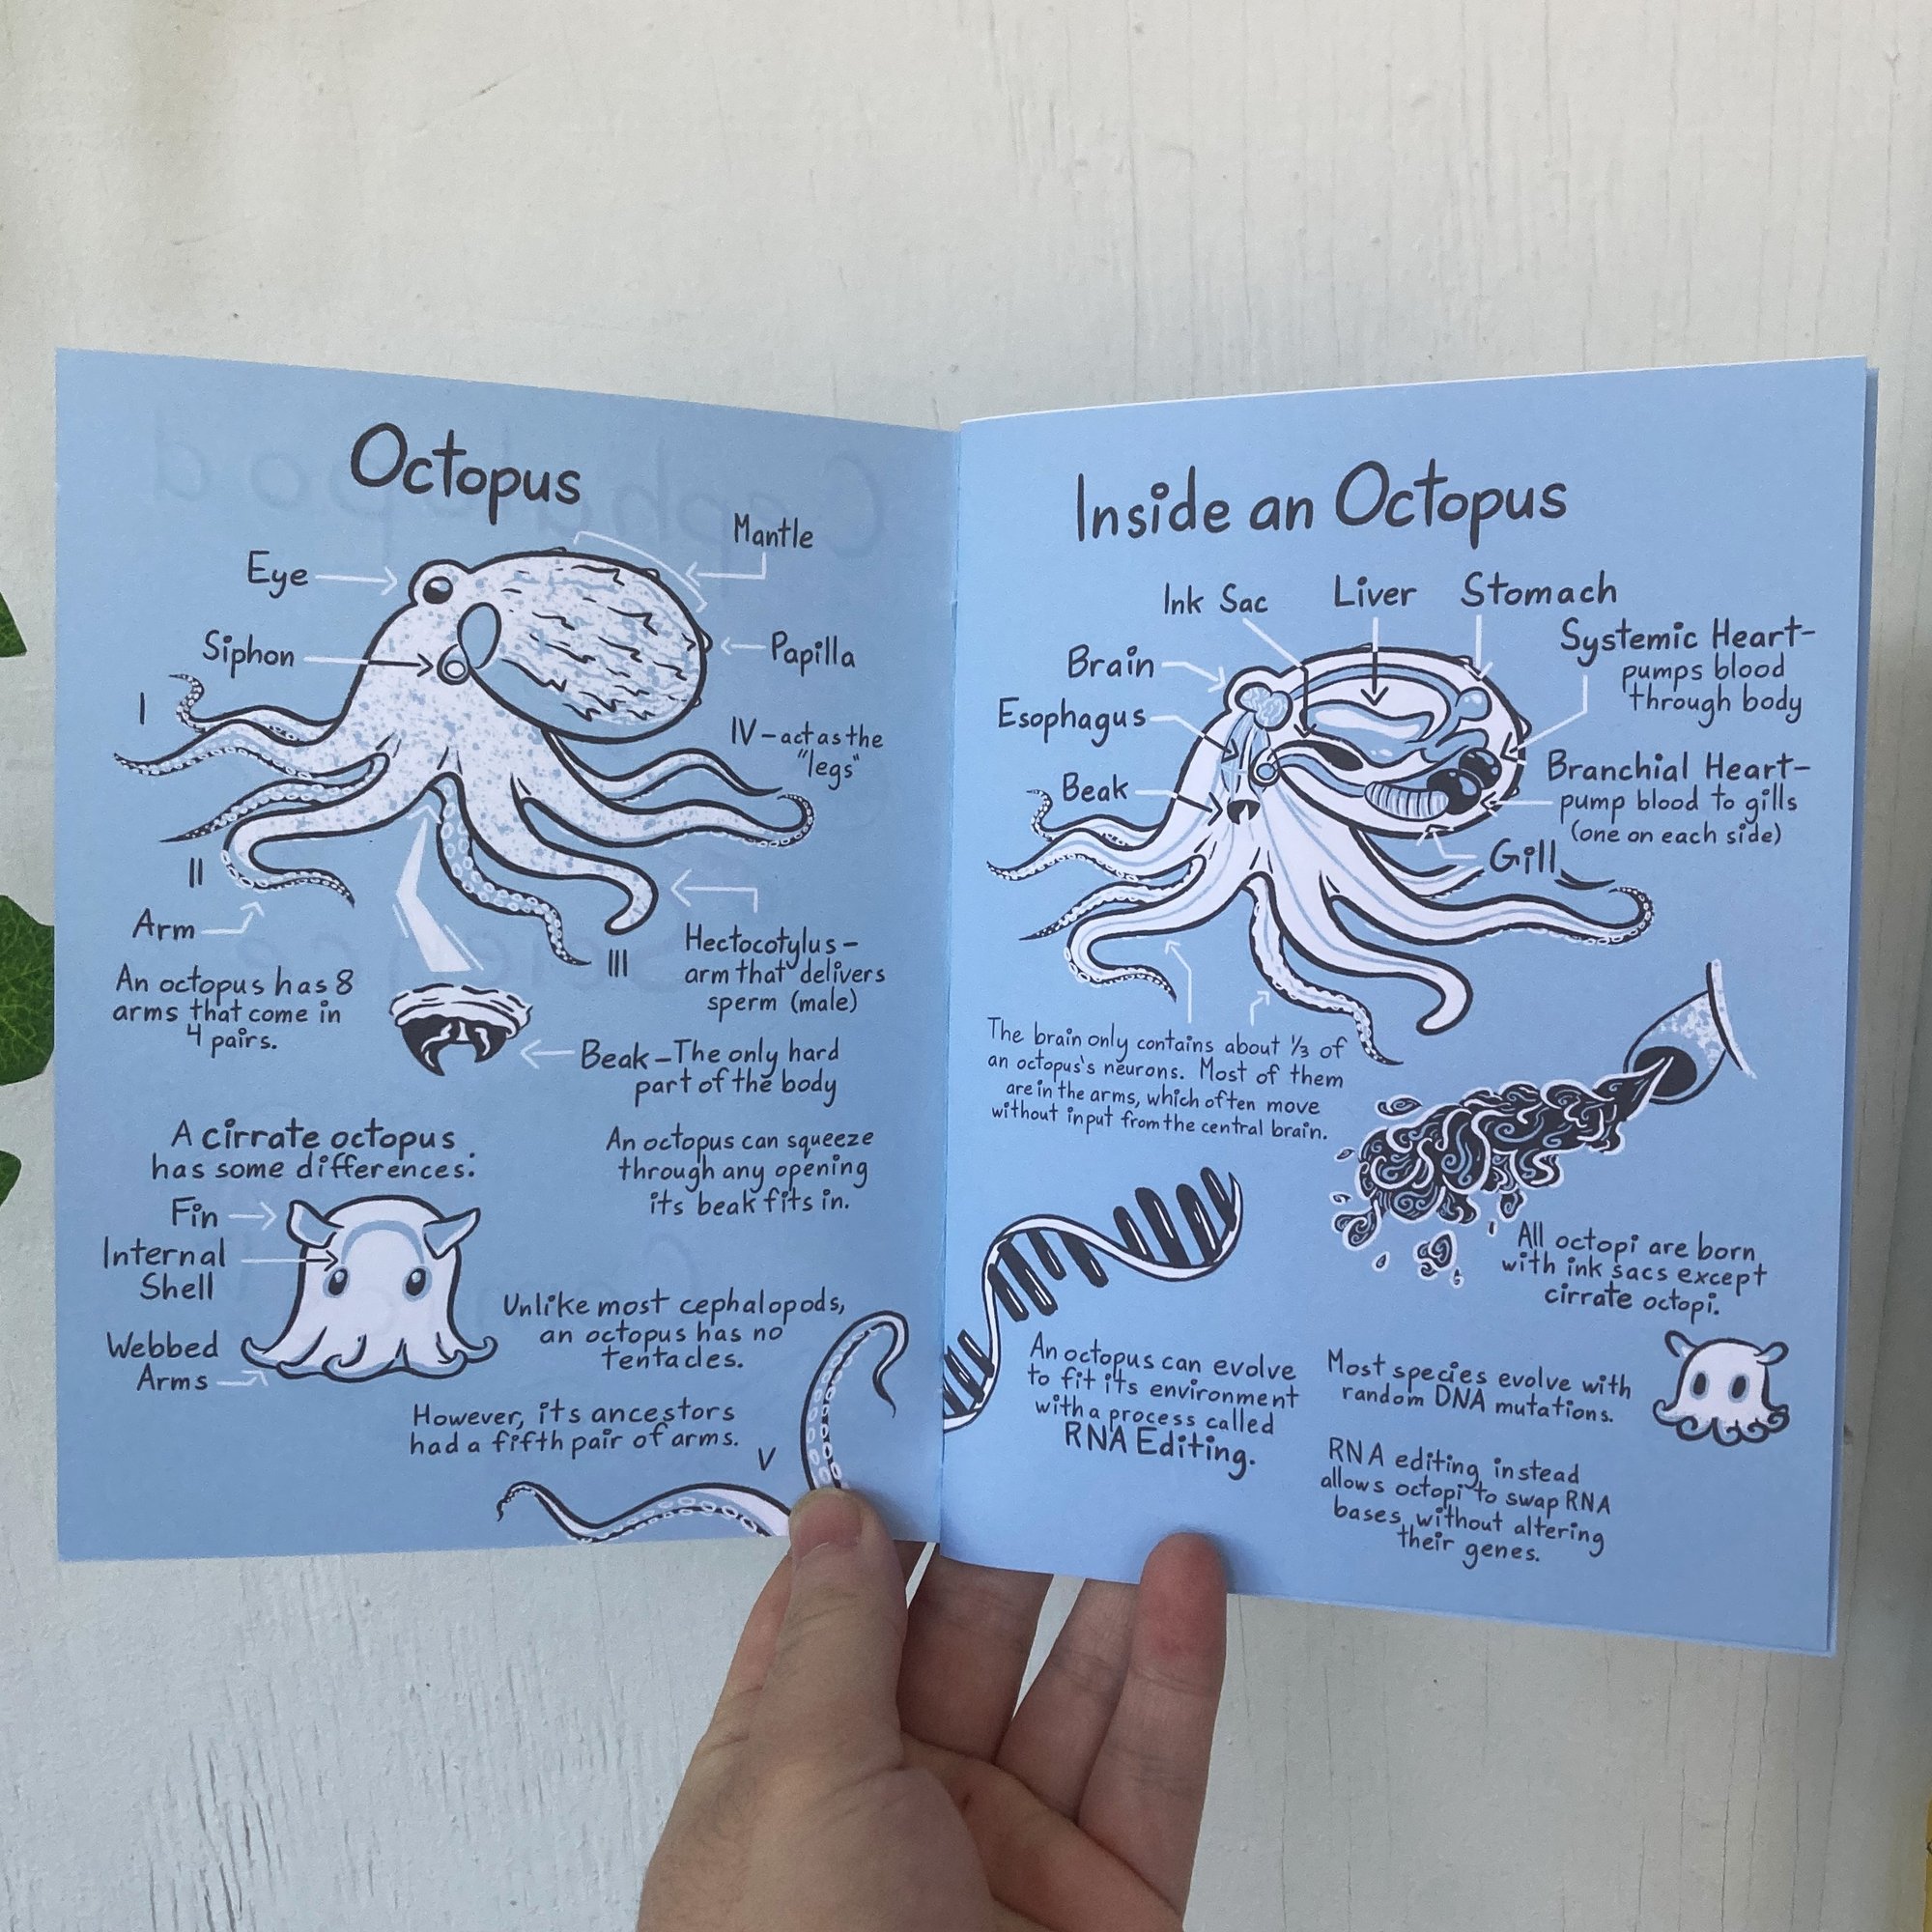 Octopus
Mantle
Eye
Siphon
Papilla
I
IV - act as the
"legs"
II
Arm
An octopus has 8
arms that come in
4 pairs.
III
Hectocotylus -
arm that delivers
sperm (male)
Beak - The only hard
part of the body
A cirrate octopus
has some differences:
An octopus can squeeze
through any opening
its beak fits in.
Fin
Internal
Shell
Webbed
Arms
Unlike most cephalopods,
an octopus has no
tentacles.
However, its ancestors
had a fifth pair of arms.
V
Inside an Octopus
Ink Sac
Liver
Stomach
Brain
Systemic Heart-
pumps blood
through body
Esophagus
Beak
Branchial Heart-
pump blood to gills
(one on each side)
Gill
The brain only contains about 1/3 of
an octopus's neurons. Most of them
are in the arms, which often move
without input from the central brain.
All octopi are born
with ink sacs except
cirrate octopi.
An octopus can evolve
to fit its environment
with a process called
RNA Editing.
Most species evolve with
random DNA mutations.
RNA editing instead
allows octopi to swap RNA
bases without altering
their genes.